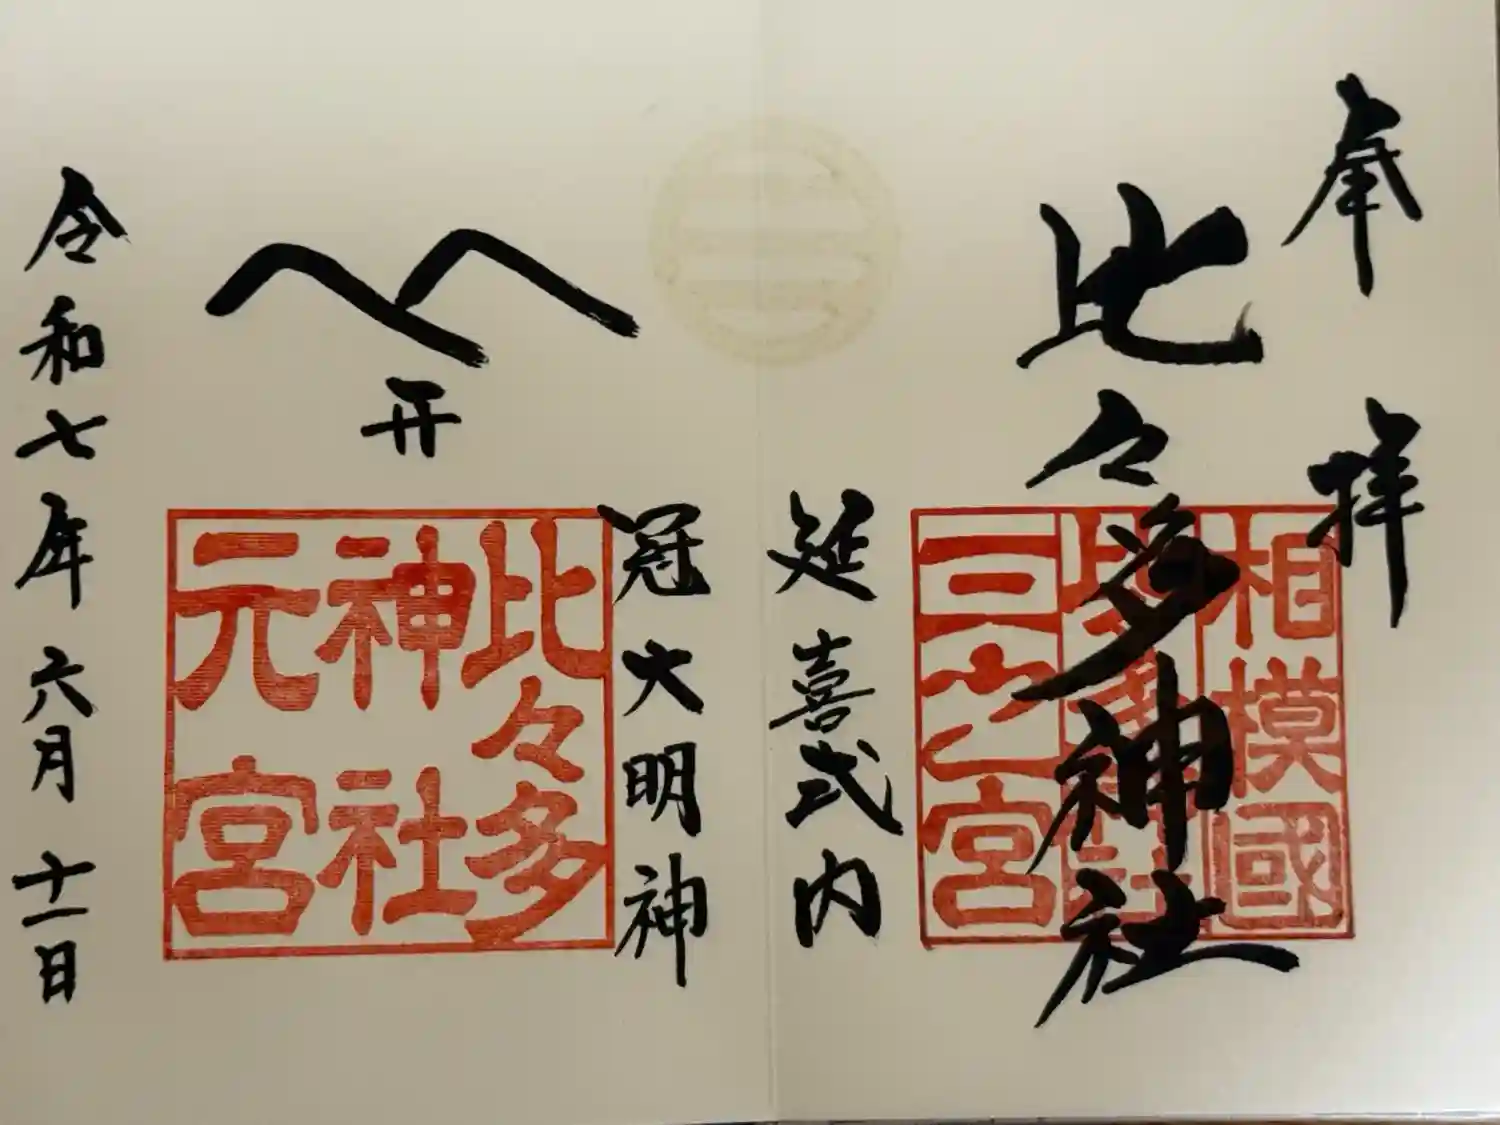 奉拝
比々多神社
相模國
比々多神社
三之宮
延喜式内
三
冠大明神
开
比々多
神社
元宮
令和七年六月十一日